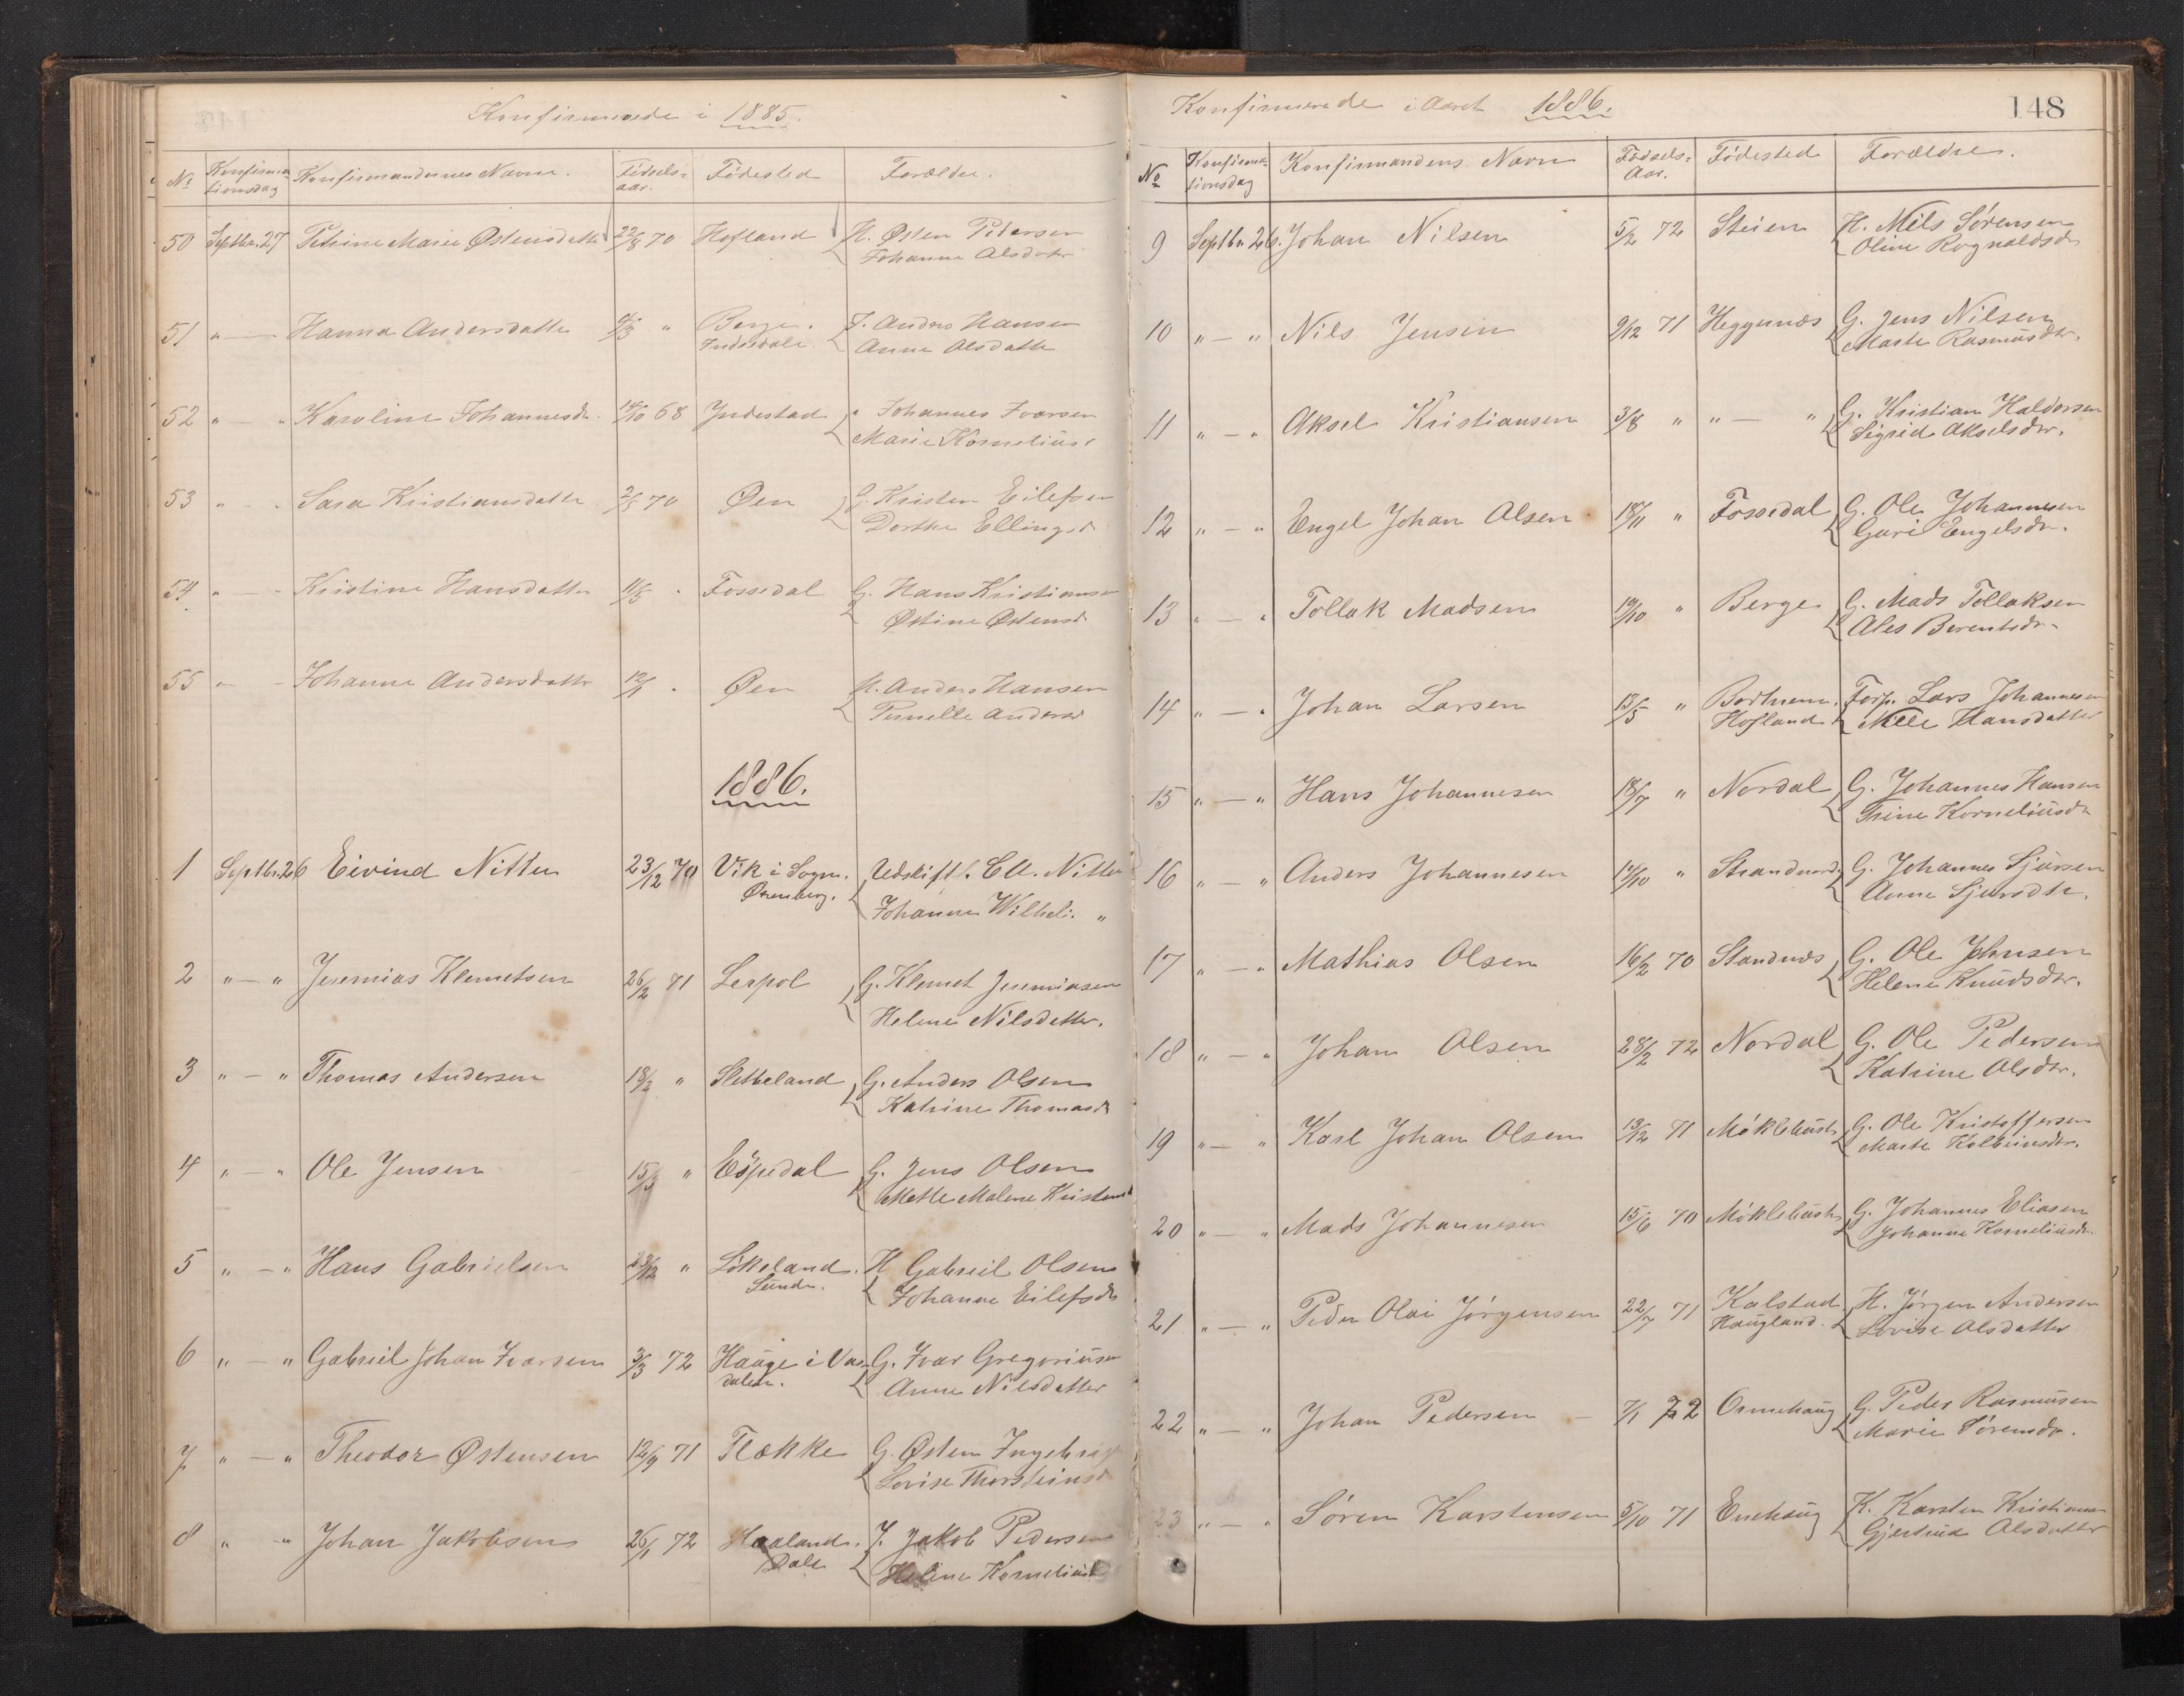 Konfirmerede i 1885.
No Konfirma- tionsdag Konfirmandernes Navne. Fødsels- aar. Fødested Forældre.
50 Septbr. 27 Petrine Marie Østensdatter 22/8 70 Hofland H. Østen Pedersen
Johanne Olsdatter
51 " — Hanna Andersdatter " Berge. F. Anders Hansen
Indredale. Anne Olsdatter
52 " — " Karoline Johannesdr. 14/10 68 Yndestad " Johannes Ivarsen
Marie Korneliusd
53 " - " Sara Kristiansdatter 70 Øen G. Kristen Eilefsen
Dorthe Ellingsd
54 " — " Kristine Hansdatter 11/5 " Fossedal G. Hans Kristiansen
Østine Østensd
55 " - Johanne Andersdatter 12/1 " Øen H. Anders Hansen
Pernelle Andersd
1886.
1 Septbr. 26 Eivind Nitter 23/12 70 Vik i Sogn. Udskift. f. Nitter
Johanne Wilhel: "
2 " — " Jeremias Klemetsen 26/2 71 Lespol G. Klemet Jeremiasen
Helene Nilsdatter.
3 " — " Thomas Andersen 18/2 " Sletteland G. Anders Olsen
Katrine Thomasd
4 " — " Ole Jensen 15/3 " Espedal G. Jens Olsen
Mette Malene Kristensd
5 " — " Hans Gabrielsen 23/12 " Løkeland. H Gabriel Olsen
Sunde. Johanne Eilefsdr
6 " — " Gabriel Johan Ivarsen 3/3 72 Hauge i Vas- G. Ivar Gregoriusen
dalen. Anne Nilsdatter
7 " — " Theodor Østensen 12/9 71 Flække G. Østen Ingebrigt
Lovise Thorsteinsd
8 " " Johan Jakobsen 26/1 72 Haaland. F. Jakob Pedersen
Dale Heline Korneliusd
Konfirmerede i Aaret 1886.
148
No Konfirma- tionsdag Konfirmandens Navn Fødsels- Aar. Fødested Forældre.
9 Septbr. 26. Johan Nilsen 5/2 72 Steien H. Nils Sørensen
Oline Rognaldsdr
10 " — " Nils Jensen 9/12 71 Heggenæs G. Jens Nilsen
Marte Rasmusdtr.
11 " — " Aksel Kristiansen 3/8 " " — " G. Kristian Haldorsen
Sigrid Akselsdtr.
12 " — " Engel Johan Olsen 18/11 " Fossedal G. Ole Johannesen
Guri Engelsdr.
13 " — " Tollak Madsen 19/10 " Berge G. Mads Tollaksen
Ales Berentsdr.
14 " — " Johan Larsen 13/5 " Borhnem. Forp. Lars Johannesen
Hofland Nille Hansdatter
15 " — " Hans Johannesen 18/7 " Nordal G. Johannes Hansen
Trine Korneliusdr
16 " — " Anders Johannesen 14/10 " Strandnord. G. Johannes Sjursen
Anne Sjursdtr.
17 " — " Mathias Olsen 16/2 70 Standnæs G. Ole Johnsen
Helene Knudsdtr.
18 " — " Johan Olsen 28/2 72 Nordal G. Ole Pedersen
Katrine Olsdtr.
19 " — " Karl Johan Olsen 13/12 71 Møklebust G. Ole Kristoffersen
Marte Kolbeinsdtr.
20 " — " Mads Johannesen 15/6 70 Møklebust G. Johannes Eliasen
Johanne Korneliusdr
21 " — " Peder Olai Jørgensen 22/7 71 Kalstad. H. Jørgen Andersen
Haugland. Lovise Olsdatter
22 " — " Johan Pedersen — 7/1 72 Ormehaug G. Peder Rasmusen
Marie Sørensdr.
23 " — " Søren Karstensen 5/10 71 Enehaug K. Karsten Kristiansen
Gjertrud Olsdatter